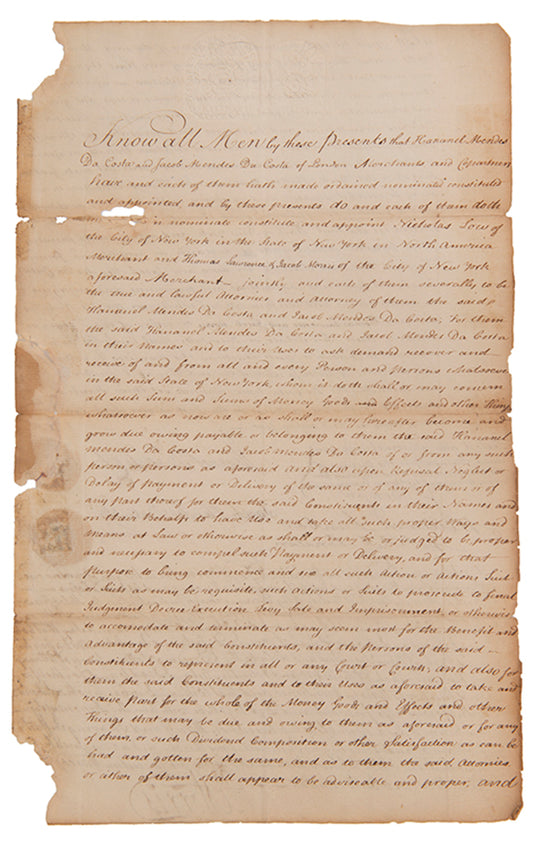 Know all Men by these Presents that Hananel Mendes
Da Costa and Jacob Mendes Da Costa of London Merchants and Copartners
have and each of them hath made ordained nominated constituted
and appointed, and by these presents do and each of them doth
nominate constitute and appoint Nicholas Low of
the City of New York in the State of New York in North America
Merchant and Thomas Lawrence & Jacob Morris of the City of New York
aforesaid Merchant jointly and each of them severally to be
the true and lawful Attornies and Attorney of them the said
Hananel Mendes Da Costa and Jacob Mendes Da Costa, For them
the said Hananel Mendes Da Costa and Jacob Mendes Da Costa
in their Names and to their Use to ask demand recover and
receive of and from all and every Person and Persons whatsoever
in the said State of New York whom it doth shall or may concern
all such Sum and Sums of Money Goods and Effects and other Things
whatsoever as now are or as shall or may hereafter become and
grow due owing payable or belonging to them the said Hananel
Mendes Da Costa and Jacob Mendes Da Costa of or from any such
person or persons as aforesaid And also upon Refusal Neglect or
Delay of Payment or Delivery of the same or of any of them or of
any Part thereof for them the said Constituents in their Names and
on their Behalfs to have Use and take all such proper Ways and
Means at Law or otherwise as shall or may be or judged to be proper
and necessary to compel such Payment or Delivery, and for that
purpose to bring commence and sue all such Action or Actions Suit
or Suits as may be requisite, such actions or suits to prosecute to final
Judgment Decree Execution Levy Sale and Imprisonment or otherwise
to accomodate and terminate as may seem most for the Benefit and
Advantage of the said Constituents, and the Persons of the said
Constituents to represent in all or any Court or Courts, and also for
them the said Constituents and to their Uses as aforesaid to take and
receive Part for the whole of the Money Goods and Effects and other
Things that may be due and owing to them as aforesaid or for any
of them, or such Dividend Composition or other Satisfaction as can be
had and gotten for the same, and as to them the said Attornies
or either of them shall appear to be adviseable and proper, and